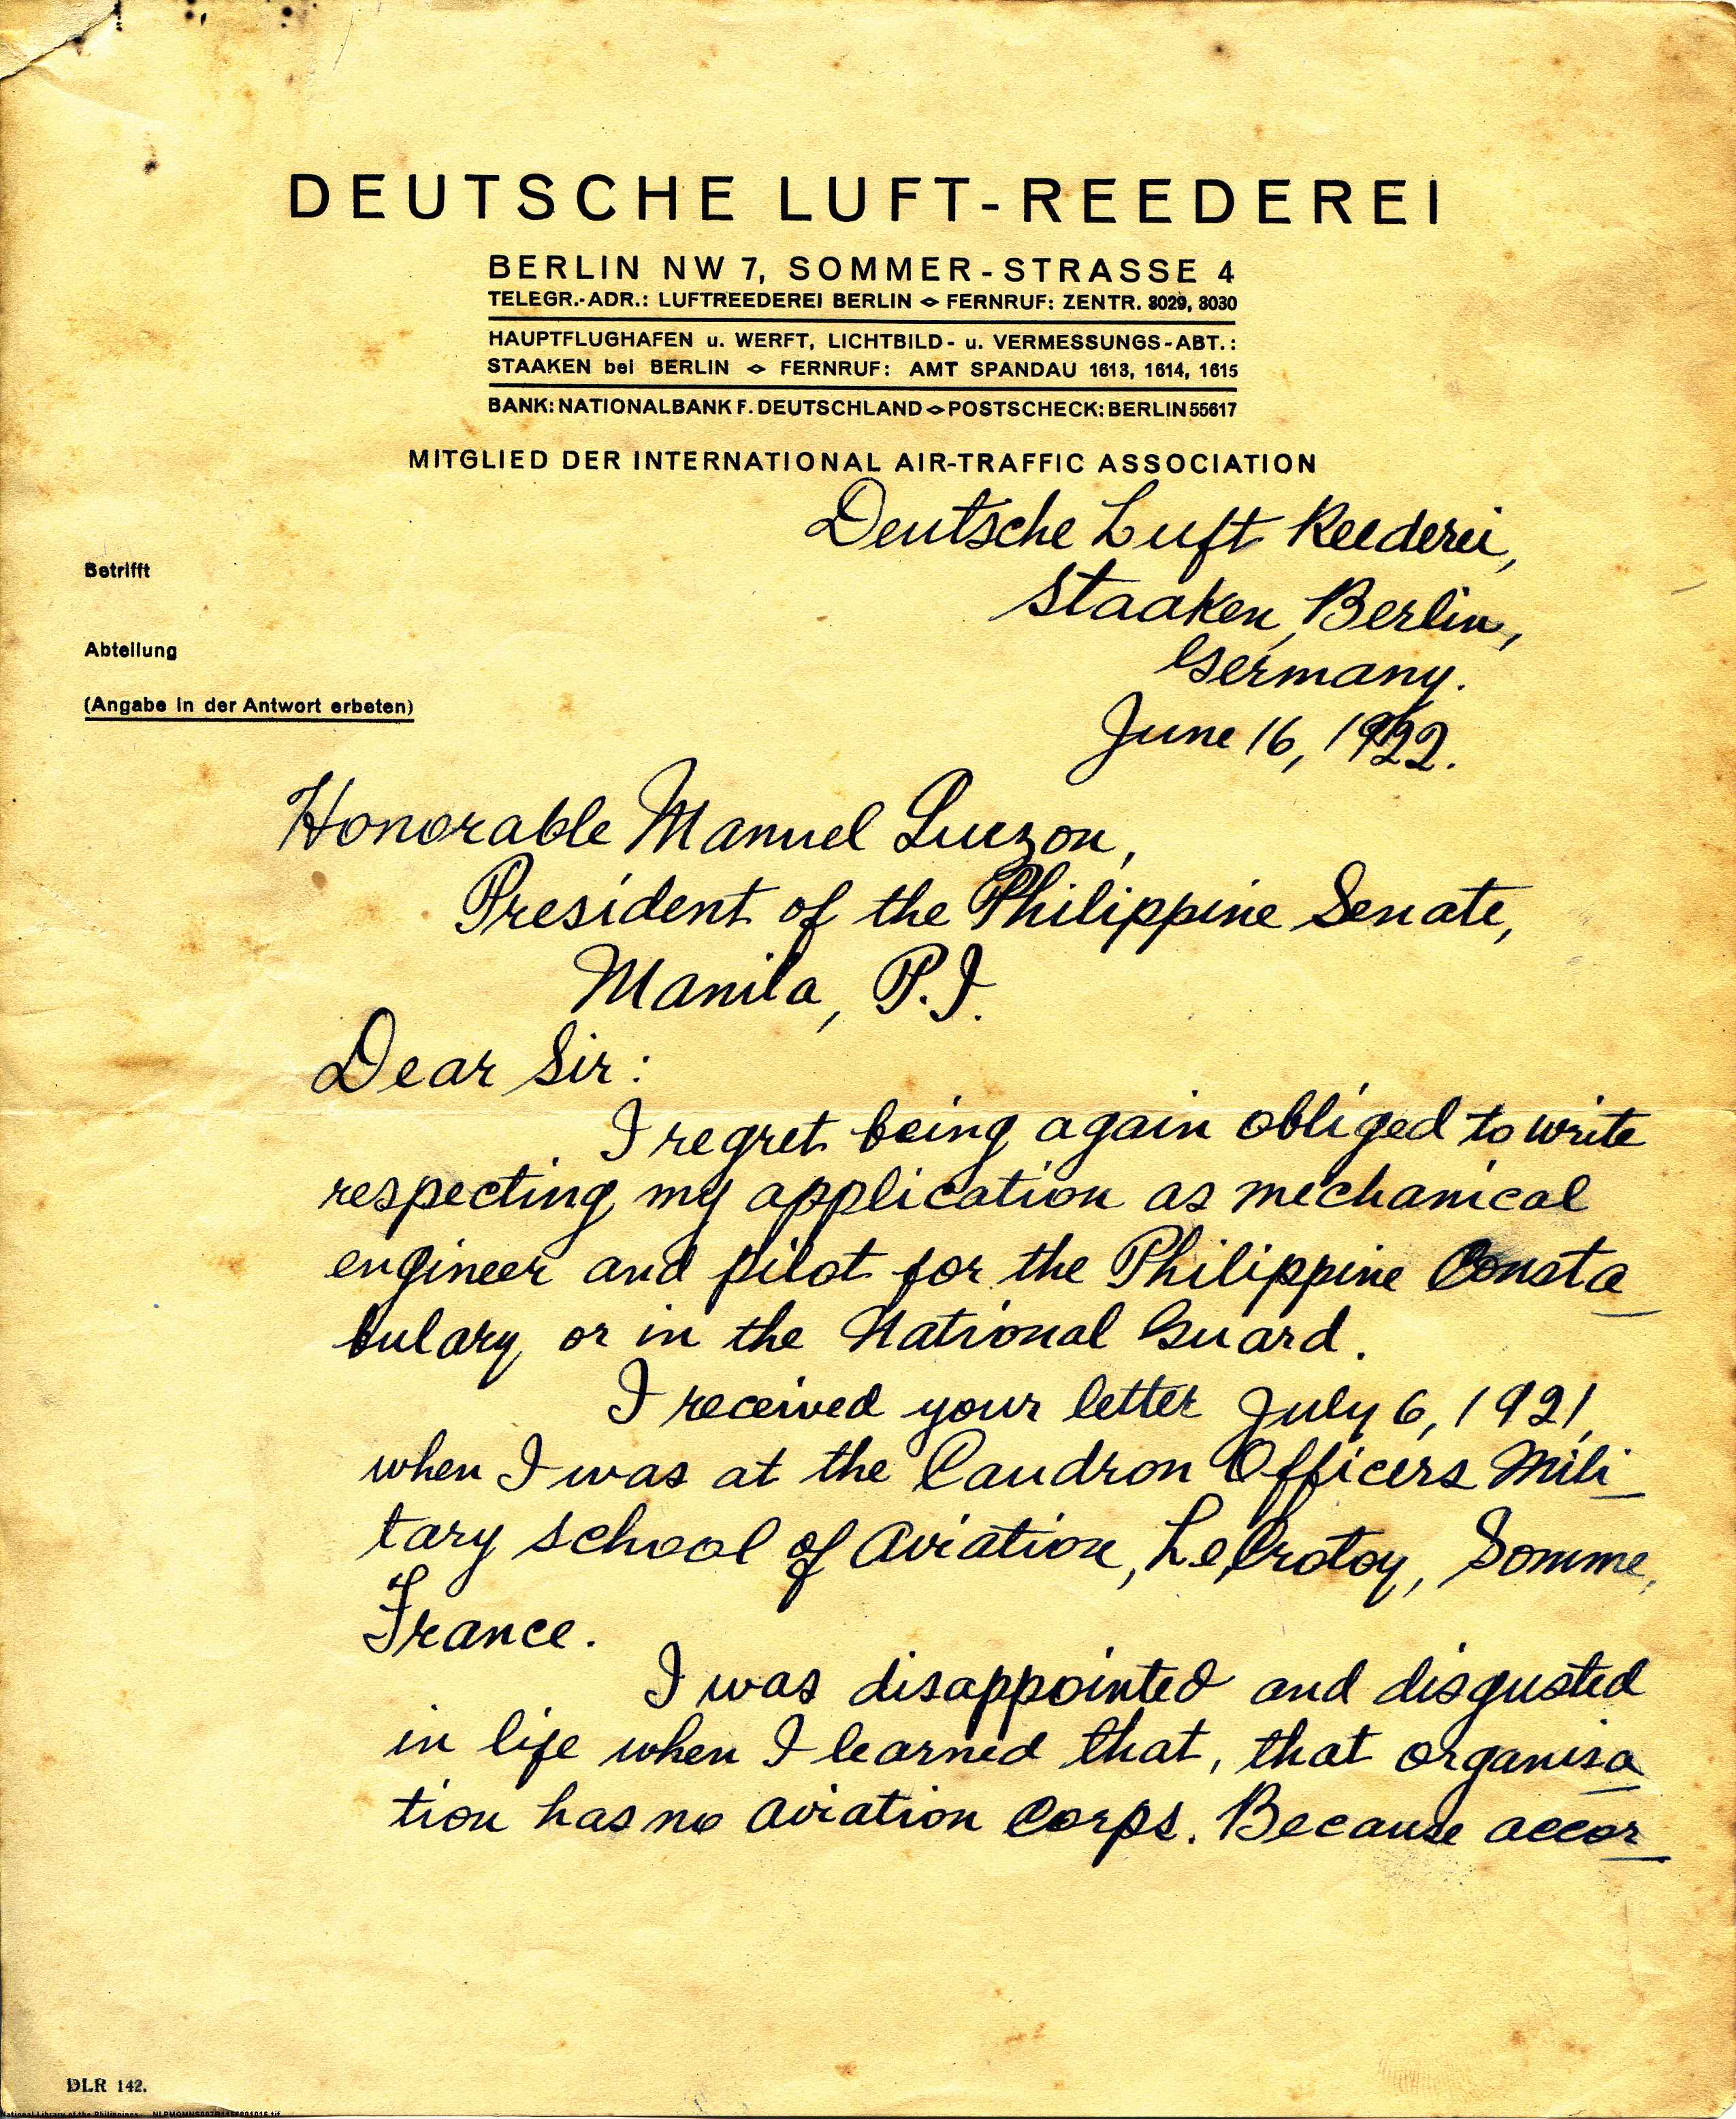 DEUTSCHE LUFT-REEDEREI
BERLIN NW 7, SOMMER-STRASSE 4
TELEGR.-ADR.: LUFTREEDEREI BERLIN ⋄ FERNRUF: ZENTR. 8029, 8030
HAUPTFLUGHAFEN u. WERFT, LICHTBILD- u. VERMESSUNGS-ABT.:
STAAKEN bei BERLIN ⋄ FERNRUF: AMT SPANDAU 1613, 1614, 1615
BANK: NATIONALBANK F. DEUTSCHLAND ⋄ POSTSCHECK: BERLIN 55617
MITGLIED DER INTERNATIONAL AIR-TRAFFIC ASSOCIATION
Deutsche Luft Reederei,
Betrifft
Staaken, Berlin,
Abteilung
Germany.
(Angabe in der Antwort erbeten)
June 16, 1922.
Honorable Manuel Quezon,
President of the Philippine Senate,
Manila, P.I.
Dear Sir:
I regret being again obliged to write
respecting my application as mechanical
engineer and pilot for the Philippine Consta
bulary or in the National Guard.
I received your letter July 6, 1921,
when I was at the Caudron Officers Mili
tary school of Aviation, Le Crotoy, Somme,
France.
I was disappointed and disgusted
in life when I learned that, that organisa
tion has no aviation corps. Because accor
DLR 142.
National Library of the Philippines